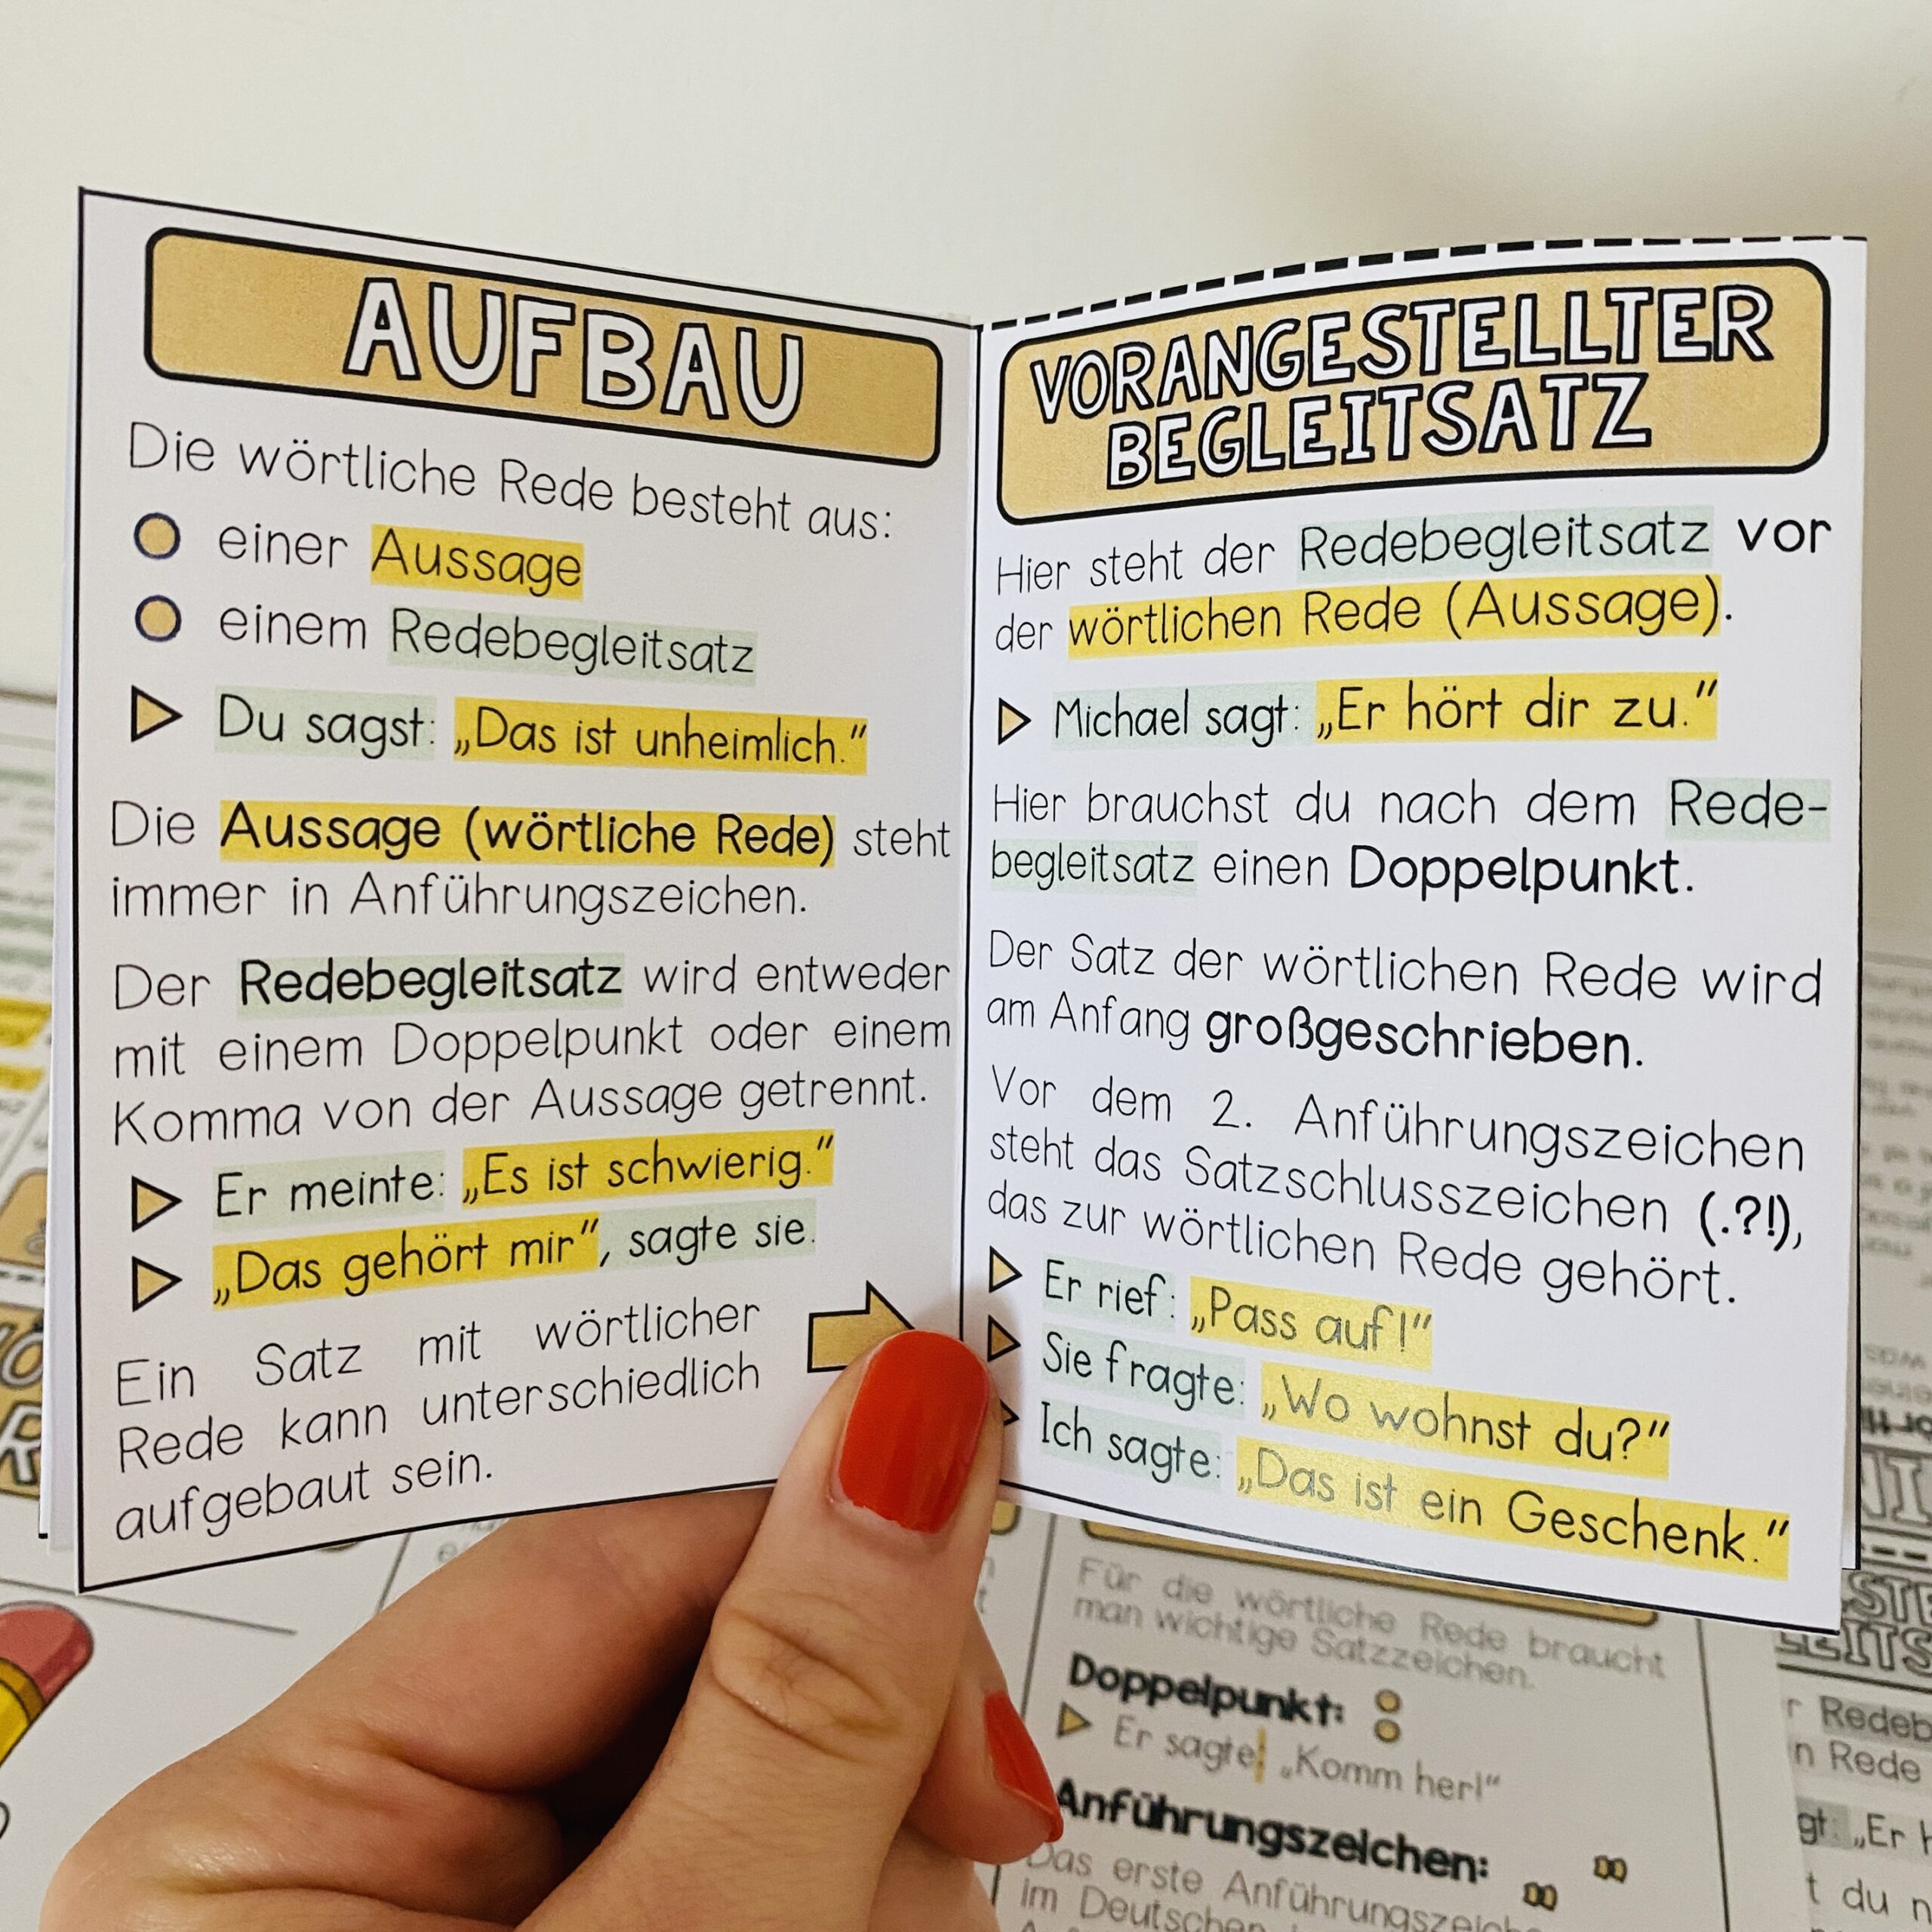 AUFBAU
Die wörtliche Rede besteht aus:
einer Aussage
einem Redebegleitsatz
Du sagst: „Das ist unheimlich.“
Die Aussage (wörtliche Rede) steht
immer in Anführungszeichen.
Der Redebegleitsatz wird entweder
mit einem Doppelpunkt oder einem
Komma von der Aussage getrennt.
Er meinte: „Es ist schwierig.“
„Das gehört mir“, sagte sie.
Ein Satz mit wörtlicher
Rede kann unterschiedlich
aufgebaut sein.
VORANGESTELLTER
BEGLEITSATZ
Hier steht der Redebegleitsatz vor
der wörtlichen Rede (Aussage).
Michael sagt: „Er hört dir zu.“
Hier brauchst du nach dem Rede-
begleitsatz einen Doppelpunkt.
Der Satz der wörtlichen Rede wird
am Anfang großgeschrieben.
Vor dem 2. Anführungszeichen
steht das Satzschlusszeichen (.?!),
das zur wörtlichen Rede gehört.
Er rief: „Pass auf!“
Sie fragte: „Wo wohnst du?“
Ich sagte: „Das ist ein Geschenk.“
Für die wörtliche Rede braucht
man wichtige Satzzeichen.
Doppelpunkt:
Er sagte: „Komm her!“
Anführungszeichen:
Das erste
im Deutschen
Rede
„Er
du